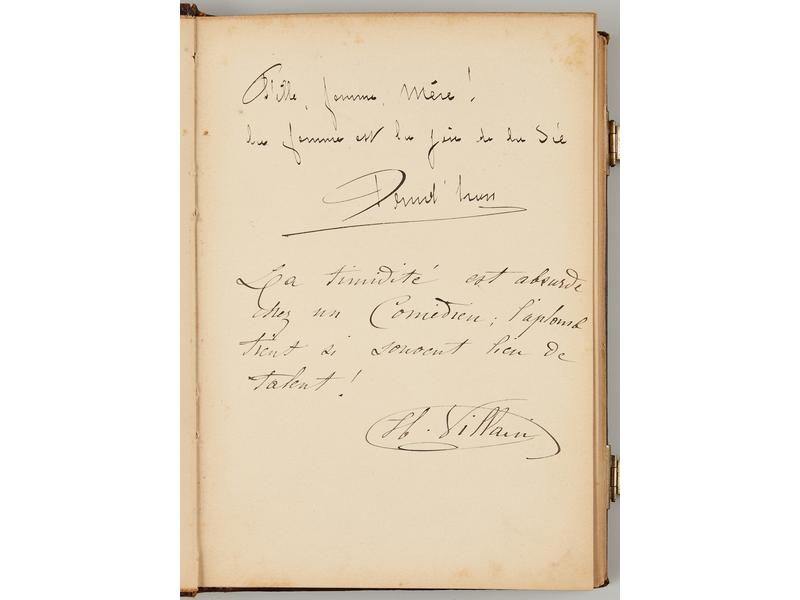 Fille, femme, Mère!
La femme est la joie de la vie
La timidité est absurde
chez un Comédien; l'aplomb
tient si souvent lieu de
talent!
H. Villain